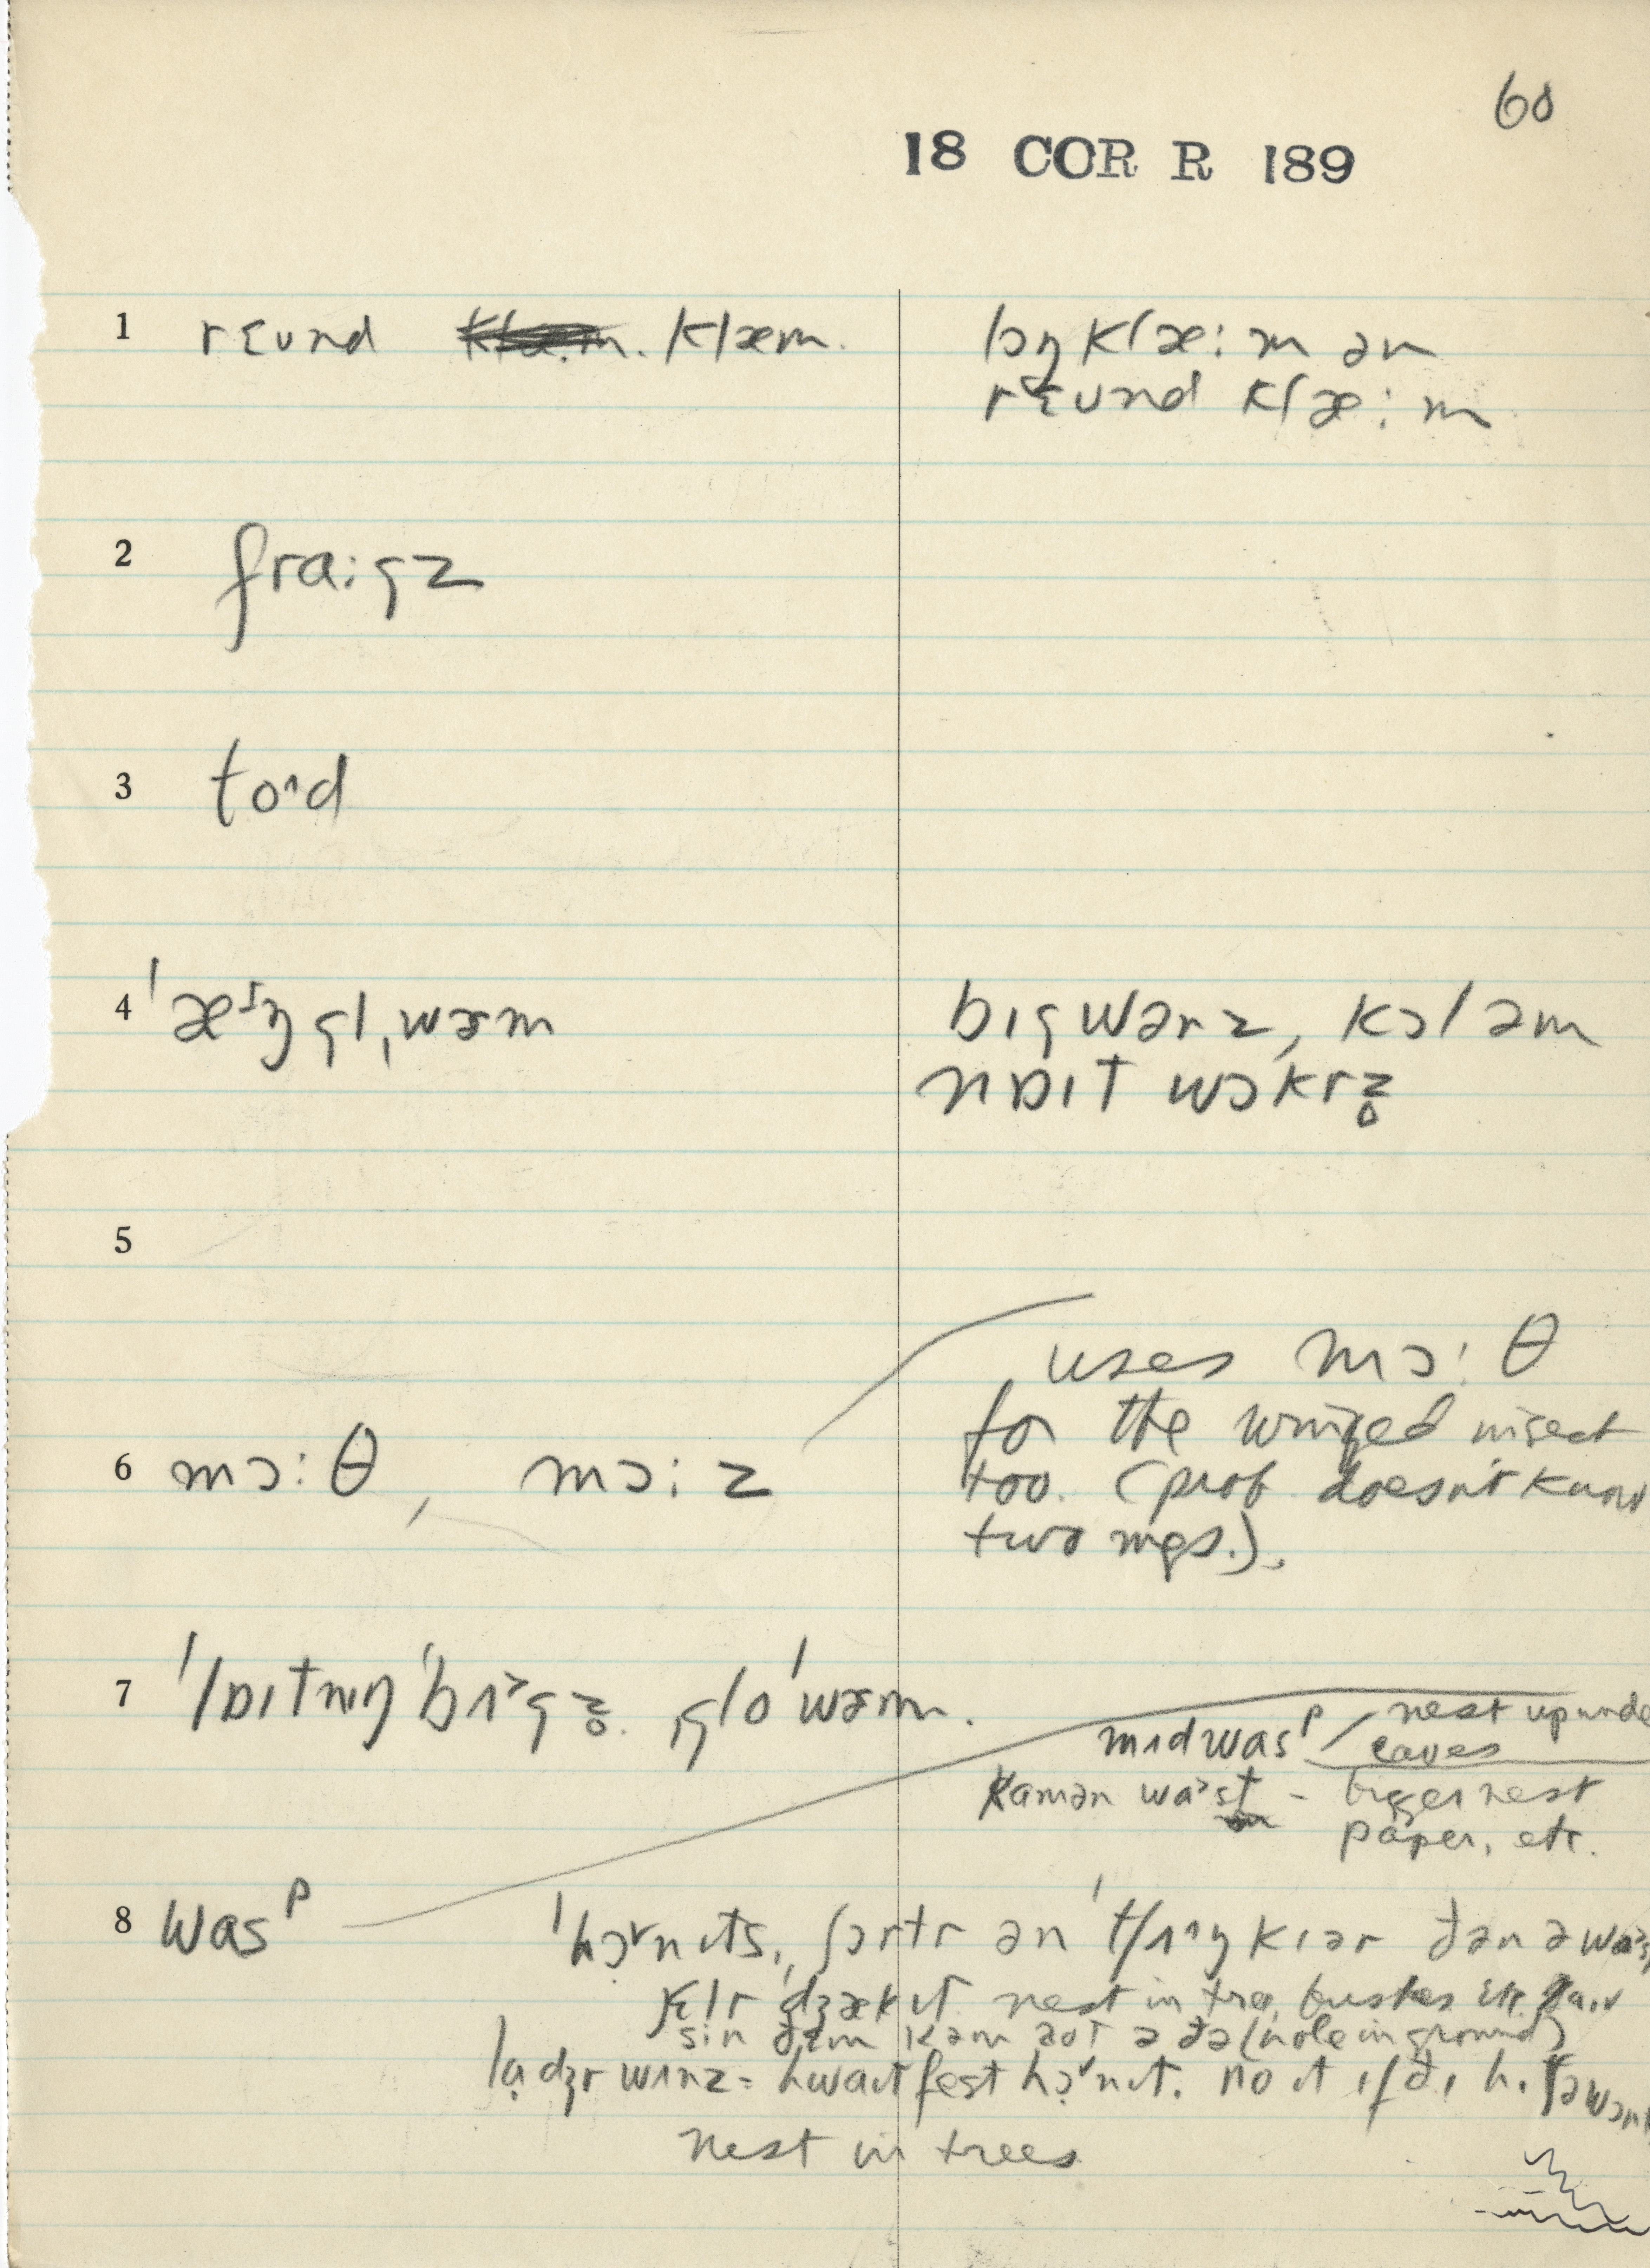 60
18 COR R 189
1 rɛund klæm. lɔŋ klæ:m ən
rɛund klæ:m
2 fra:gz
3 to^d
4 ˈæᶦŋgl ˌwɚm bɪg wənz, kɔl əm
nɒɪt wɔkrz̥
5
uses mɔ:θ
for the winged insect
6 mɔ:θ, mɔ:z too. (prob doesn't know
two mgs.).
7 ˈlɒɪtnɪŋ ˈbʌ˃gz̥. ˌgloˈwɚm.
mʌd wasᵖ / nest up unde
eaves
kamən wa˃st - bigger nest
paper, etc.
8 wasᵖ ˈhɔ˅nɪts, ʃɔrtr ən ˈtʃʌ^ŋkɪər ðən ə
ˈdʒækɪt nest in tree, bushes etc.
sin ðɛm kəm aʊt ə ðə (hole in ground)
ladʒr wʌnz = hwaɪt fest hɔ˅nɪt.
nest in trees